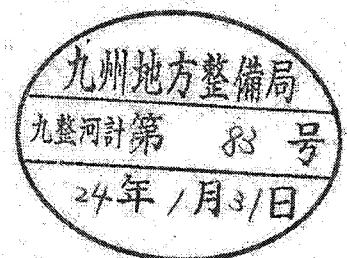 九州地方整備局
九整河計第 85 号
24年1月31日